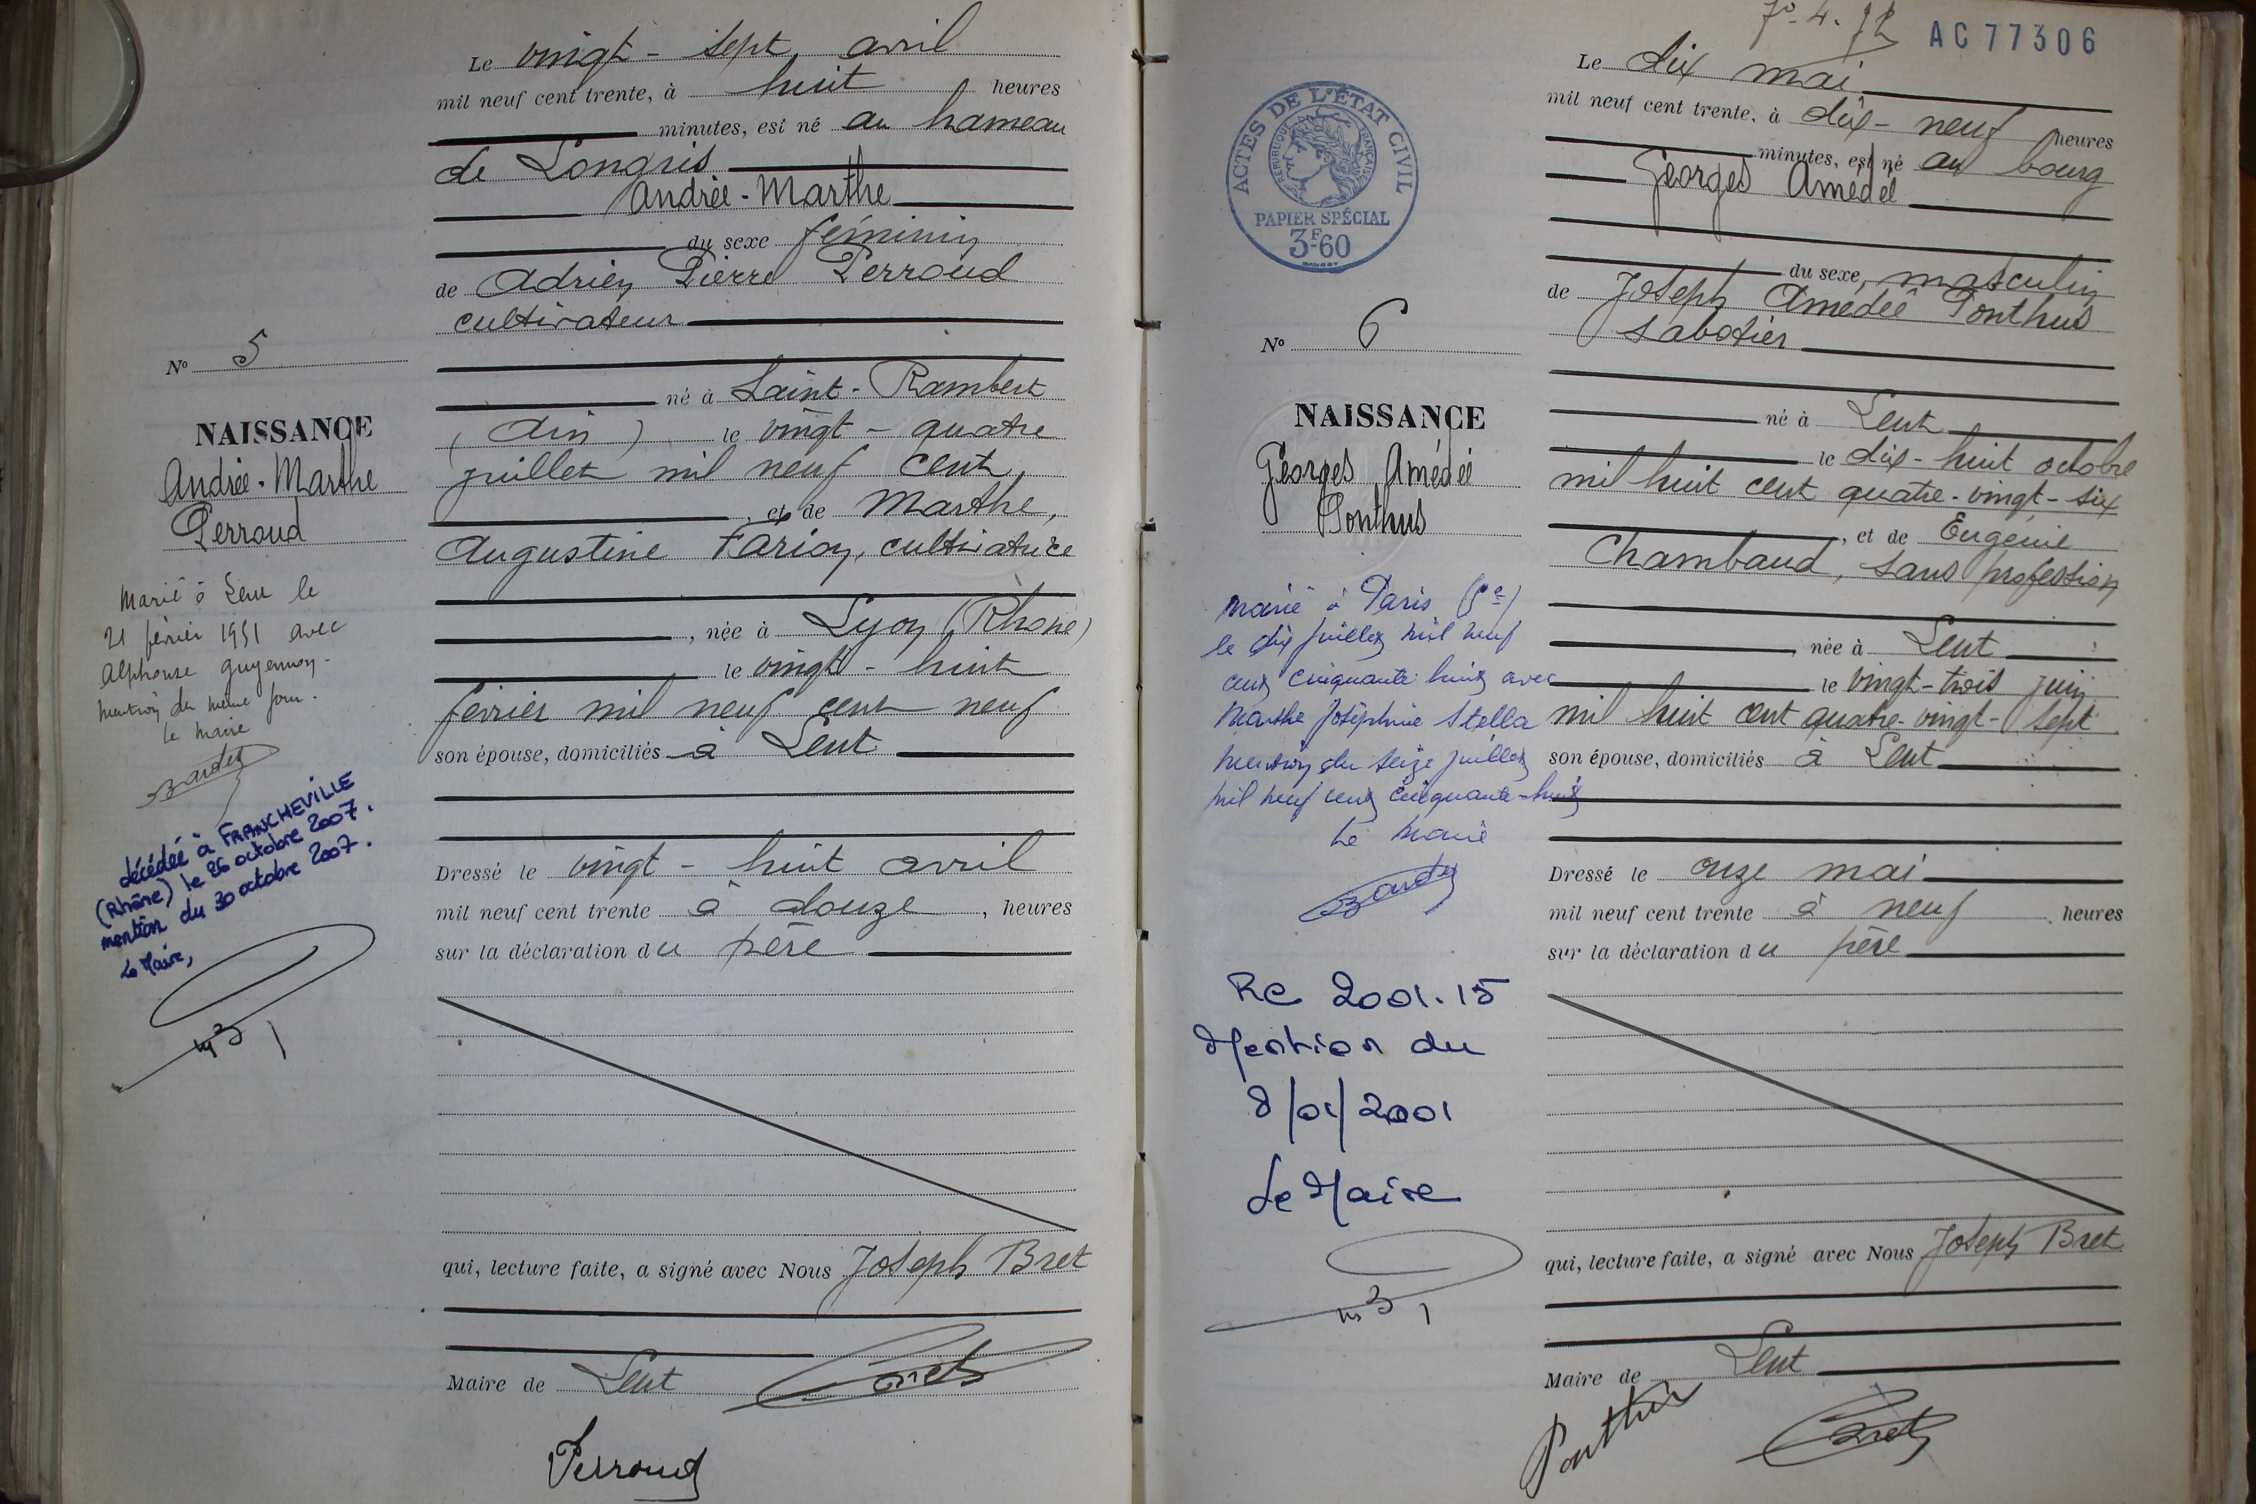 Le vingt-sept avril
mil neuf cent trente, à huit heures
minutes, est né au hameau
de Longris
Andrée-Marthe
du sexe féminin
de Adrien Pierre Perroud
cultivateur
né à Saint-Rambert
(Ain) le vingt-quatre
juillet mil neuf cent
, et de Marthe,
Augustine Farion, cultivatrice
, née à Lyon (Rhône)
le vingt-huit
février mil neuf cent neuf
son épouse, domiciliés à Lent
Dressé le vingt-huit avril
mil neuf cent trente à douze, heures
sur la déclaration du père
qui, lecture faite, a signé avec Nous Joseph Bret
Maire de Lent
Bret
Perroud
No 5
NAISSANCE
Andrée-Marthe
Perroud
Marié à Lent le
21 février 1951 avec
Alphonse Guyennon.
Mention du même jour.
Le Maire
décédée à FRANCHEVILLE
(Rhône) le 26 octobre 2007.
mention du 30 octobre 2007.
Le Maire,
AC77306
Le dix mai
mil neuf cent trente, à dix-neuf heures
minutes, est né au bourg
Georges Amédée
du sexe, masculin
de Joseph Amédée Ponthus
sabotier
né à Lent
le dix-huit octobre
mil huit cent quatre-vingt-six
, et de Eugénie
Chambaud, sans profession
née à Lent
le vingt-trois juin
mil huit cent quatre-vingt-sept
son épouse, domiciliés à Lent
Dressé le onze mai
mil neuf cent trente à neuf heures
sur la déclaration du père
qui, lecture faite, a signé avec Nous Joseph Bret
Maire de Lent
Ponthus
Bret
ACTES DE L'ÉTAT CIVIL
RÉPUBLIQUE FRANÇAISE
PAPIER SPÉCIAL
3F60
No 6
NAISSANCE
Georges Amédée
Ponthus
Marié à Paris (5e)
le dix juillet mil neuf
cent cinquante-huit avec
Marthe Joséphine Stella
Mention du seize juillet
mil neuf cent cinquante-huit
Le Maire
RC 2001.15
Mention du
8/01/2001
Le Maire